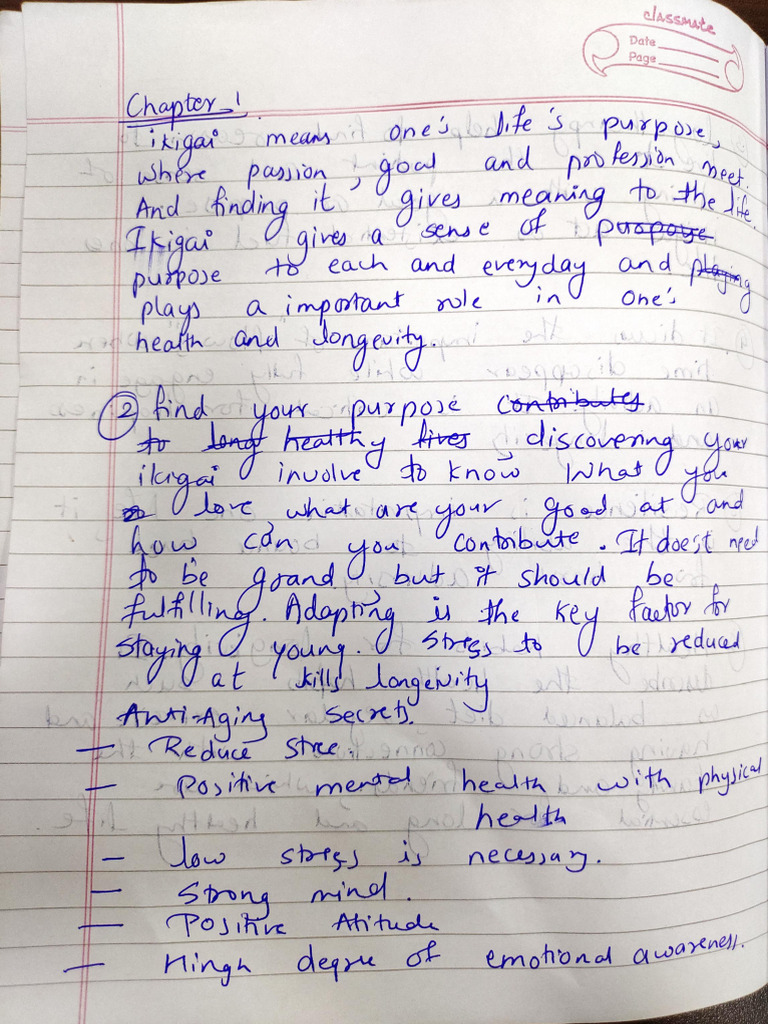 classmate
Date
Page
Chapter-1
ikigai means one's life's purpose,
where passion, goal and profession meet.
And finding it gives meaning to the life.
Ikigai gives a sense of purpose
purpose to each and everyday and playing
plays a important role in one's
health and longevity.
2 find your purpose contributes
to long healthy lives, discovering your
ikigai involve to know What you
love what are your good at and
how can you contribute. It doest need
to be grand, but it should be
fulfilling. Adapting is the key factor for
staying young. Stress to be reduced
at kills longeivity
Anti-Aging Secrets.
— Reduce stree.
— Positive mental health with physical
health
— low stress is necessary.
— Strong mind.
— Positive Atitude
— Hingh degree of emotional awareness.